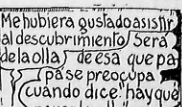 Me hubiera gustado asistir
al descubrimiento Será
de la olla de esa que pa
pa se preocupa
cuando dice "hay que